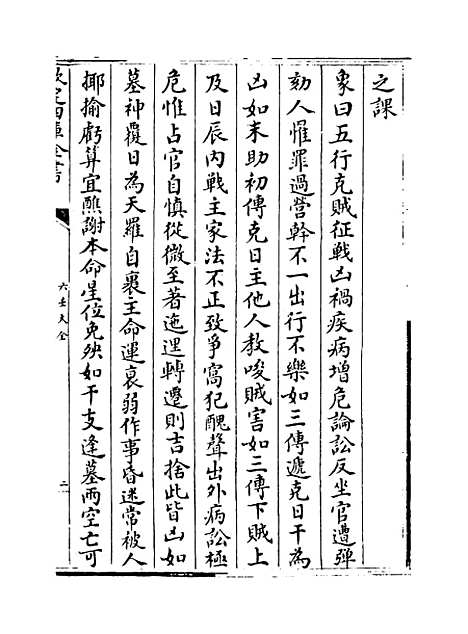 之課
象曰五行克賊征戰凶禍疾病增危論訟反坐官遭彈
劾人罹罪過營幹不一出行不樂如三傳遞克日干為
凶如末助初傳克日主他人教唆賊害如三傳下賊上
及日辰内戰主家法不正致爭窩犯醜聲出外病訟極
危惟占官自慎從微至著迤邐轉遷則吉捨此皆凶如
墓神覆日為天羅自裹主命運衰弱作事昏迷常被人
揶揄虧算宜醮謝本命星位免殃如干支逢墓兩空亡可
欽定四庫全書
六壬大全
二